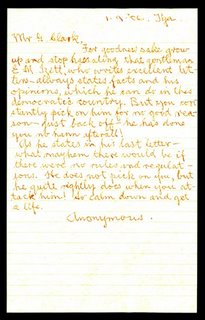 Mr G Clark,
For goodness sake grow
up and stop hassling that gentleman
E M Sett, who writes excellent let-
ters - always states facts and his
opinions, which he can do in this
democratic country. But you con-
stantly pick on him for no good rea-
son - just back off! he has done
you no harm afterall!
As he states in his last letter -
what mayhem there would be if
there were no rules and regulat-
ions. He does not pick on you, but
he quite rightly does when you at-
tack him! So calm down and get
a life.
Anonymous.